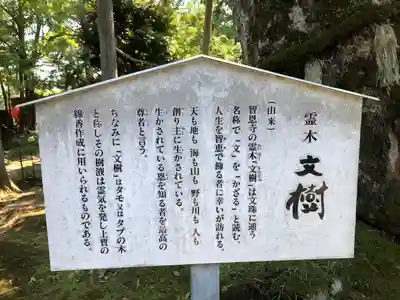 霊木 文樹
(由来)
智恩寺の霊木「文樹」は文珠に通う
名称で「文」を「かざる」と読む、
人生を智恵で飾る者に幸いが訪れる。
天も地も 海も山も 野も川も 人も
創り主に生かされている。
生かされている恩を知る者を最高の
尊者と言う。
ちなみに「文樹」はタモ又はタブの木
と称しその樹液は霊気を発し上質の
線香作成に用いられるものである。